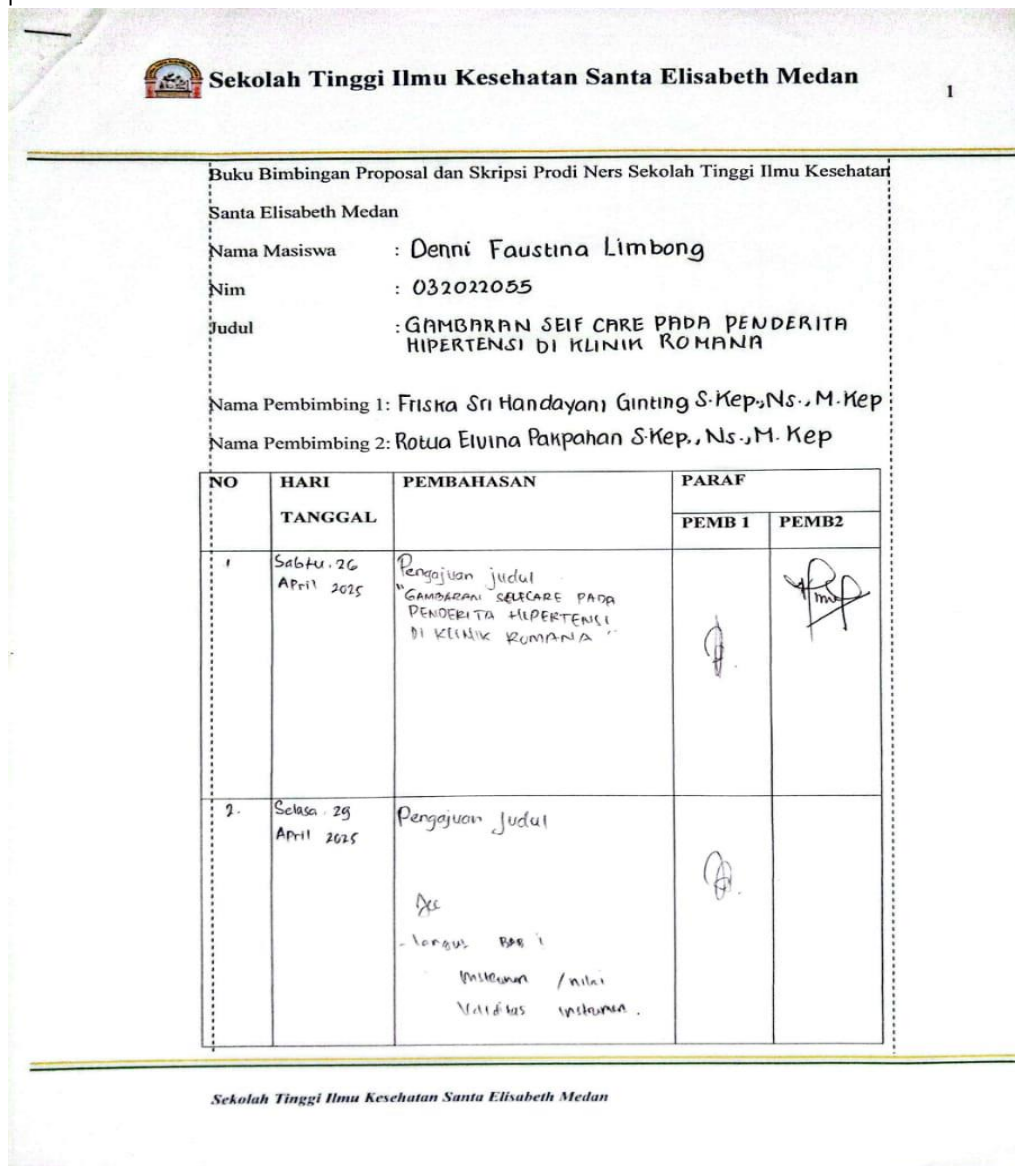 Sekolah Tinggi Ilmu Kesehatan Santa Elisabeth Medan
1
Buku Bimbingan Proposal dan Skripsi Prodi Ners Sekolah Tinggi Ilmu Kesehatan
Santa Elisabeth Medan
Nama Masiswa : Denni Faustina Limbong
Nim : 032022055
Judul : GAMBARAN SEIF CARE PADA PENDERITA
HIPERTENSI DI KLINIK ROMANA
Nama Pembimbing 1: Friska Sri Handayani Ginting S.Kep.,Ns., M.Kep
Nama Pembimbing 2: Rotua Elvina Pakpahan S.Kep., Ns., M. Kep
NO HARI PEMBAHASAN PARAF
TANGGAL PEMB 1 PEMB2
1 Sabtu. 26 Pengajuan judul
April 2025 "GAMBARAN SELFCARE PADA
PENDERITA HIPERTENSI
DI KLINIK ROMANA"
2. Selasa. 29 Pengajuan Judul
April 2025
Acc
- langus BAB i
instrumen / nilai
Validitas instrumen.
Sekolah Tinggi Ilmu Kesehatan Santa Elisabeth Medan